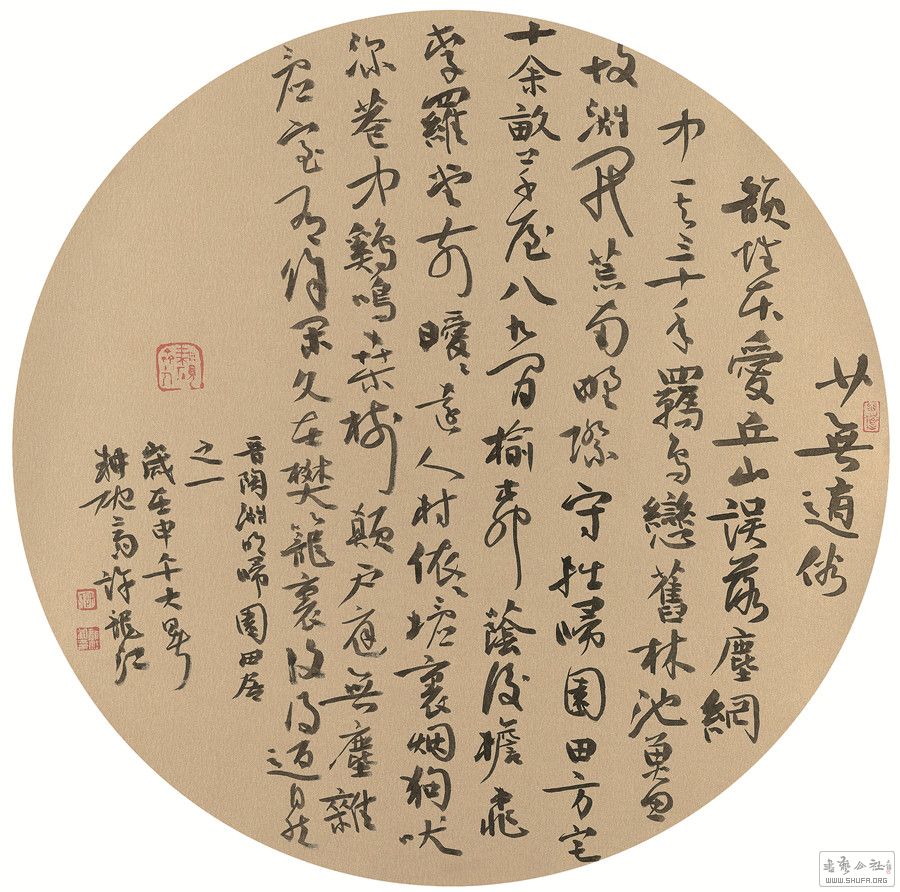 少無適俗
韻性本愛丘山誤落塵網
中一去三十年羈鳥戀舊林池魚思
故淵開荒南野際守拙歸園田方宅
十余畝草屋八九間榆柳蔭後檐桃
李羅堂前曖〻遠人村依〻墟裏烟狗吠
深巷中鷄鳴桑樹顛戶庭無塵雜
虛室有餘閒久在樊籠裏復得返自然
晉陶淵明歸園田居
之一
歲壬申年大暑
耕硯齋許龍江
書藝公社
WWW.SHUFA.ORG